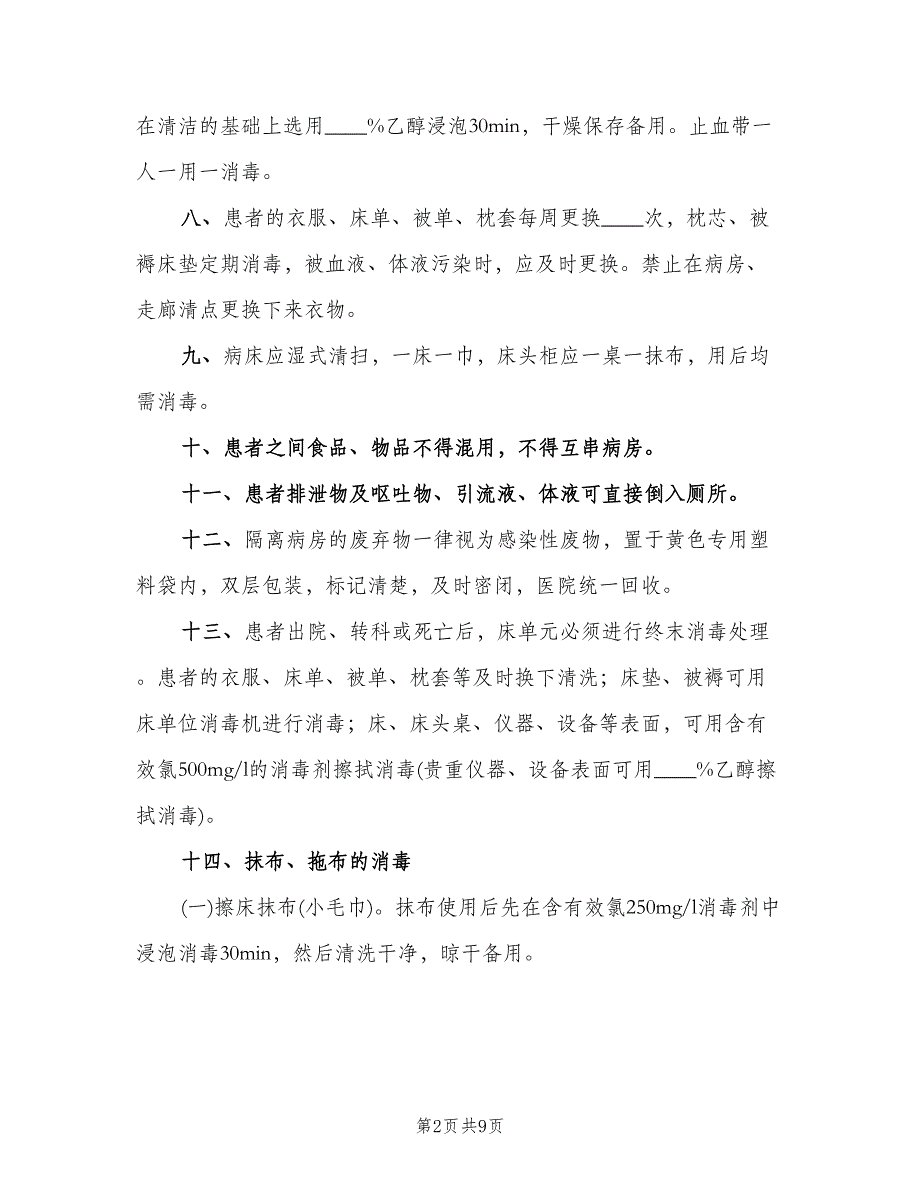 在清洁的基础上选用____%乙醇浸泡30min，干燥保存备用。止血带一
人一用一消毒。
八、患者的衣服、床单、被单、枕套每周更换____次，枕芯、被
褥床垫定期消毒，被血液、体液污染时，应及时更换。禁止在病房、
走廊清点更换下来衣物。
九、病床应湿式清扫，一床一巾，床头柜应一桌一抹布，用后均
需消毒。
十、患者之间食品、物品不得混用，不得互串病房。
十一、患者排泄物及呕吐物、引流液、体液可直接倒入厕所。
十二、隔离病房的废弃物一律视为感染性废物，置于黄色专用塑
料袋内，双层包装，标记清楚，及时密闭，医院统一回收。
十三、患者出院、转科或死亡后，床单元必须进行终末消毒处理
。患者的衣服、床单、被单、枕套等及时换下清洗；床垫、被褥可用
床单位消毒机进行消毒；床、床头桌、仪器、设备等表面，可用含有
效氯500mg/l的消毒剂擦拭消毒(贵重仪器、设备表面可用____%乙醇擦
拭消毒)。
十四、抹布、拖布的消毒
(一)擦床抹布(小毛巾)。抹布使用后先在含有效氯250mg/l消毒剂中
浸泡消毒30min，然后清洗干净，晾干备用。
第2页共9页